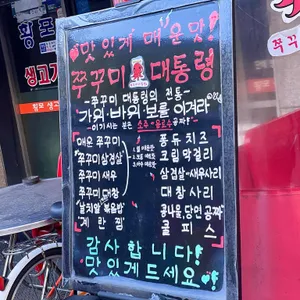 맛있게 매운맛!
쭈꾸미 대통령
-쭈꾸미 대통령의 전통-
가위·바위·보를 이겨라
-이기시는 분은 소주·음료수 공짜!-
매운 쭈꾸미
쭈꾸미삼겹살
쭈꾸미 새우
쭈꾸미 대창
날치알 볶음밥
계란찜
퐁듀치즈
크림막걸리
삼겹살·새우사리
대창사리
콩나물,당면 공짜
쿨피스
감사합니다!
맛있게드세요!
횡포
생고기
쭈꾸